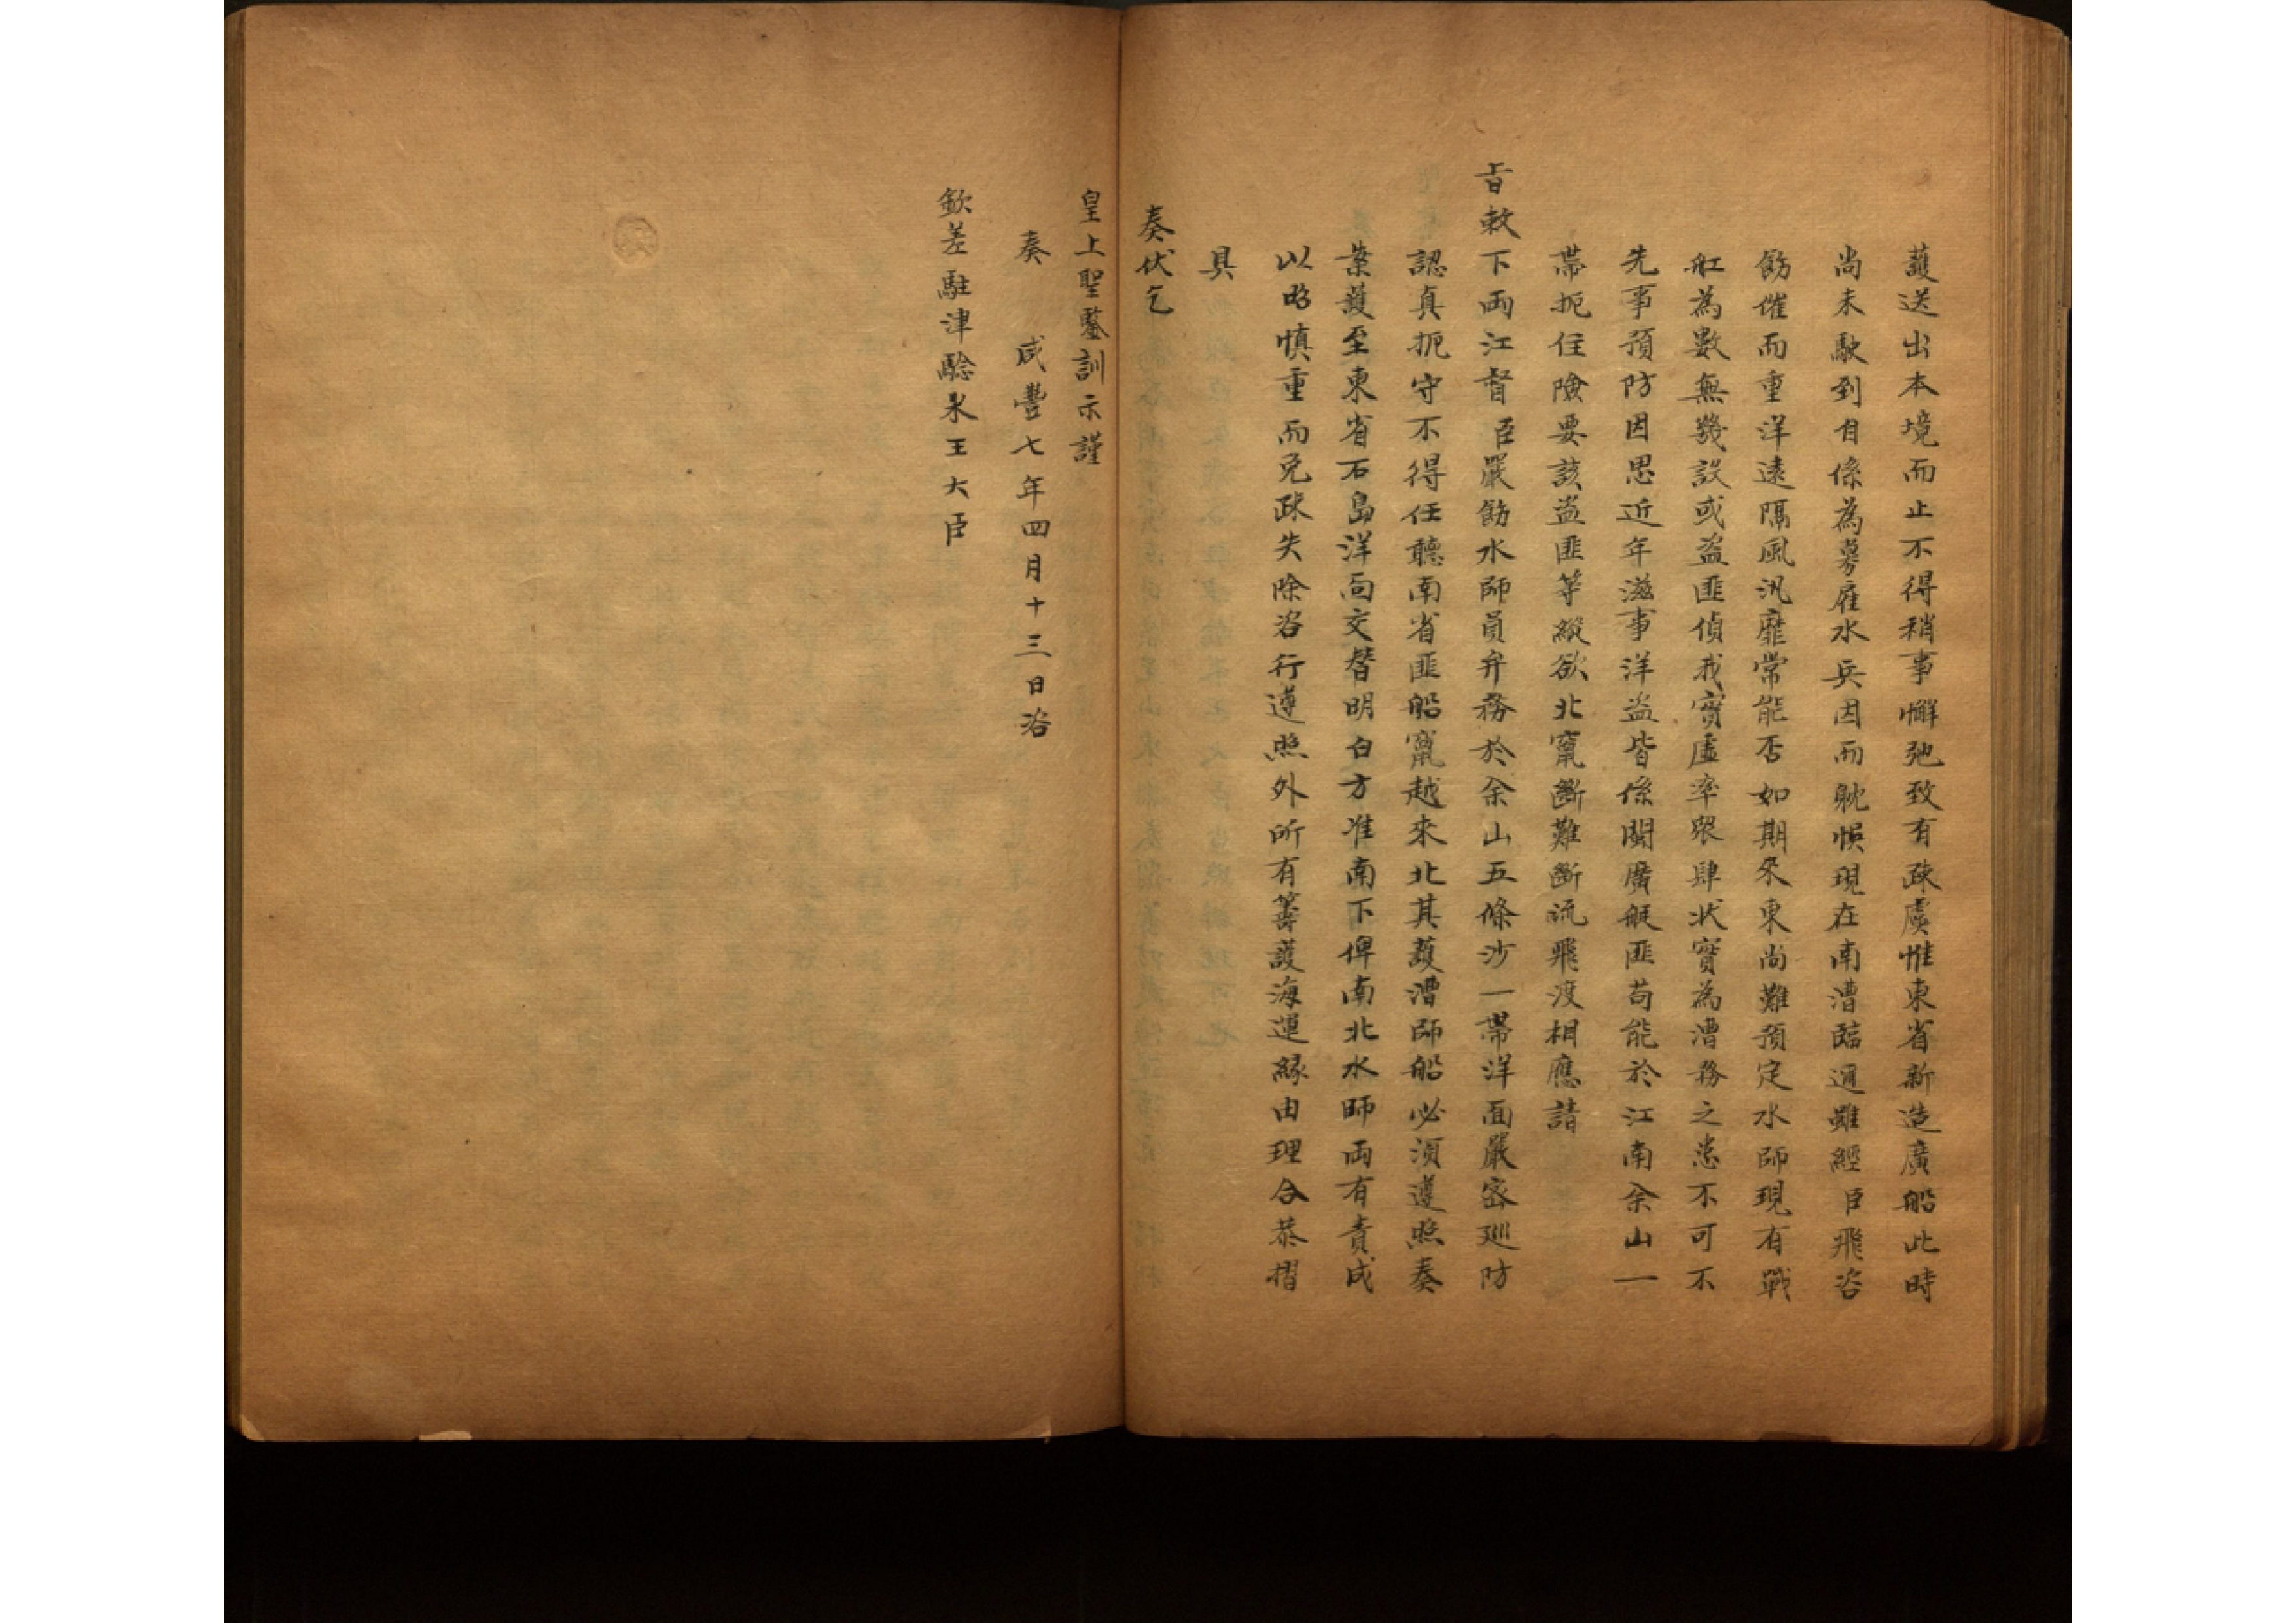 護送出本境而止不得稍事懈弛致有疎虞惟東省新造廣船此時
尚未駛到自係為募雇水兵因而躭悞現在南漕臨通雖經臣飛咨
飭催而重洋遠隔風汛靡常能否如期來東尚難預定水師現有戰
舡為數無幾設或盗匪偵我實虛率眾肆狀實為漕務之患不可不
先事預防因思近年滋事洋盗皆係閩廣艇匪苟能於江南佘山一
帶扼住險要該盗匪等縱欲北竄斷難斷流飛渡相應請
旨敕下兩江督臣嚴飭水師員弁務於佘山五條沙一帶洋面嚴密巡防
認真扼守不得任聽南省匪船竄越來北其護漕師船必須遵照奏
案護至東省石島洋面交替明白方准南下俾南北水師兩有責成
以昭慎重而免疎失除咨行遵照外所有籌護海運緣由理合恭摺
具
奏伏乞
皇上聖鑒訓示謹
奏　咸豐七年四月十三日咨
欽差駐津驗米王大臣